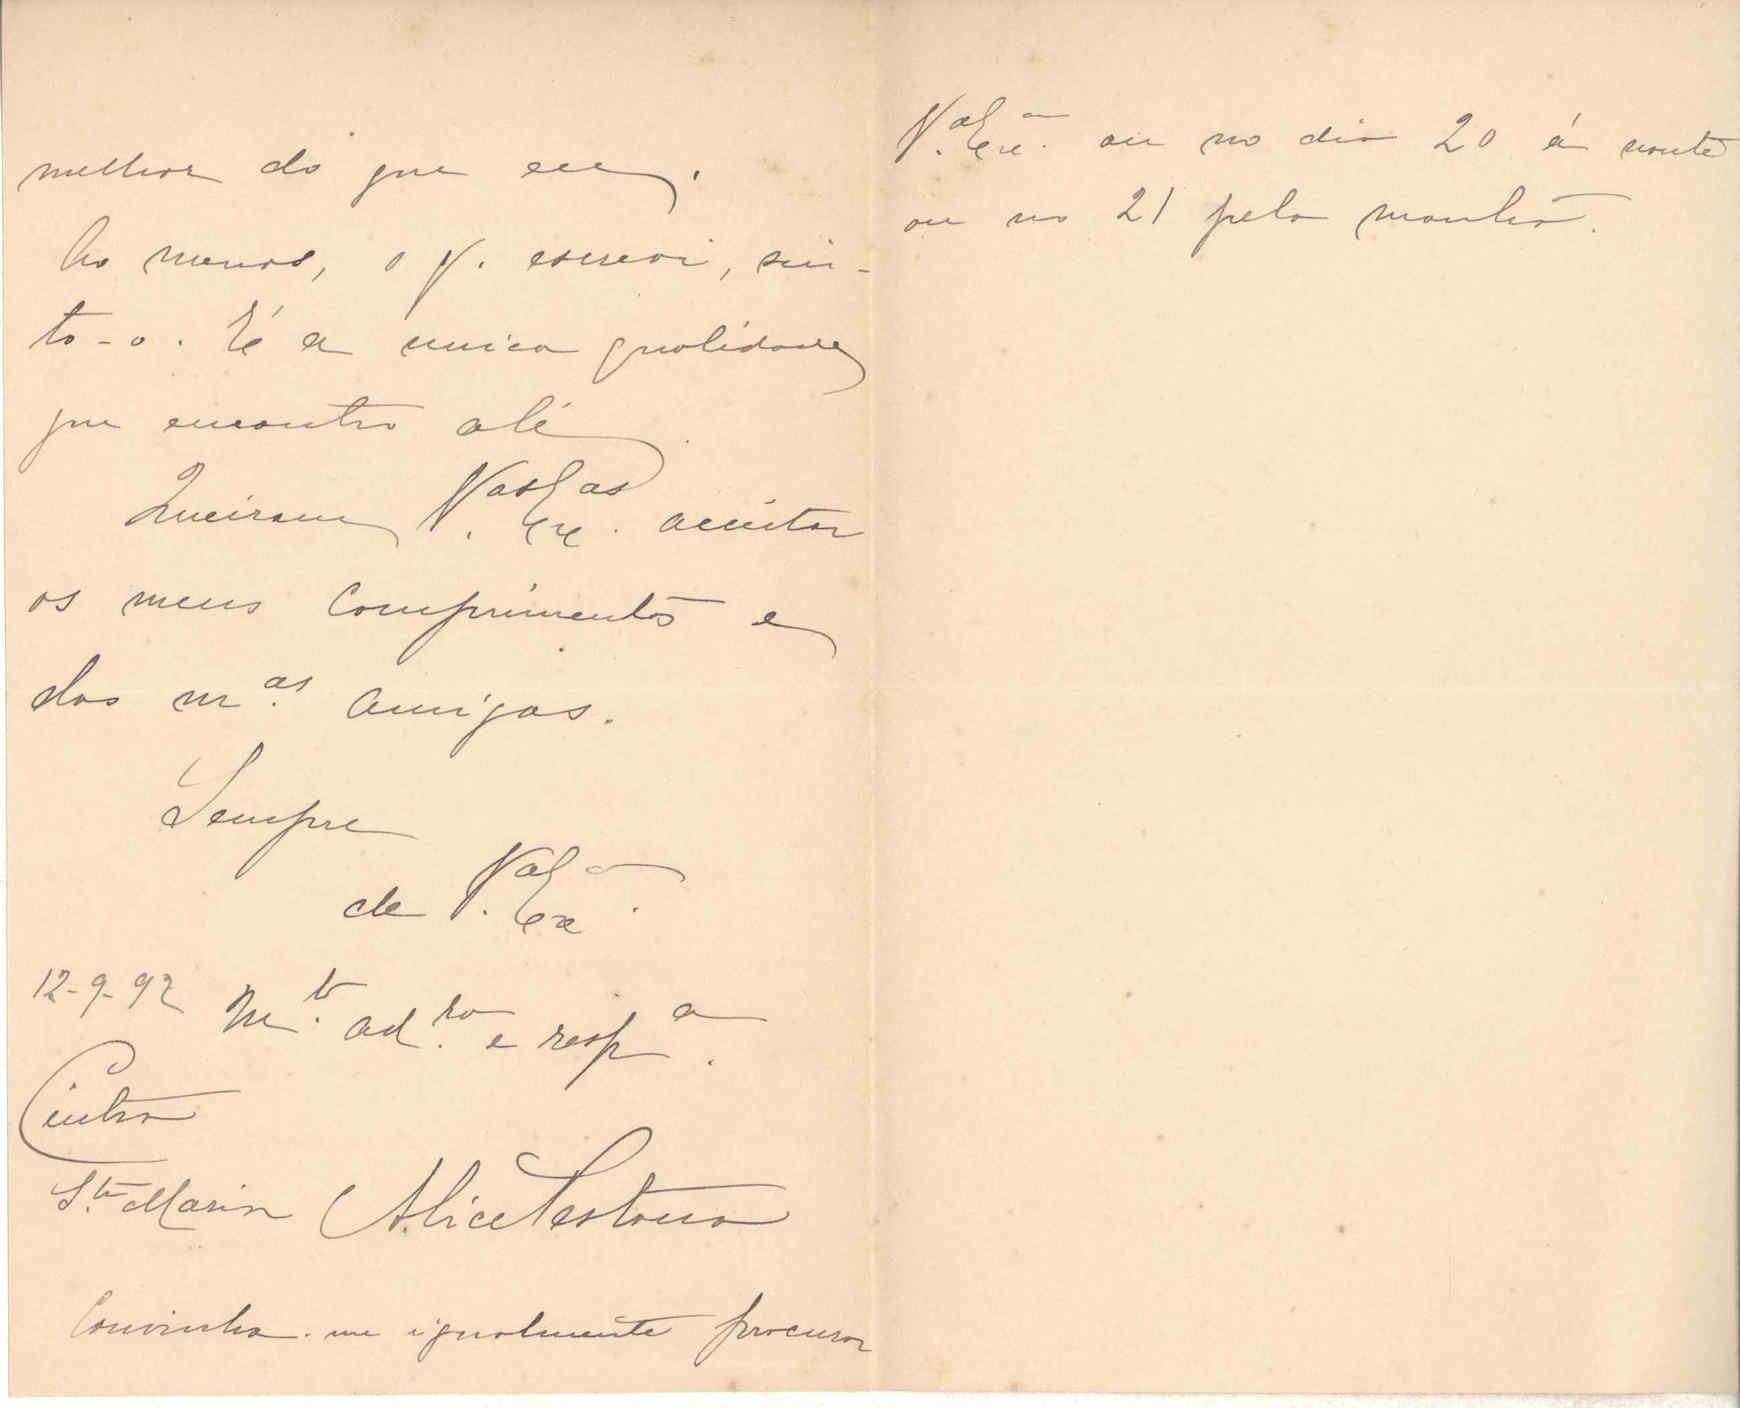 melhor do que eu.
Ao menos, o q. escrevi, sin-
to-o. É a unica qualidade
que encontro alé
Queiram V.as Ex.as acceitar
os meus comprimentos e
das m.as amigas.
Sempre
de V.a Ex.a
12-9-92 M.to ad.ra e resp.a
Cintra
S.ta Maria Alice Pestana
Convinha-me igualmente procurar
V.a Ex.a ou no dia 20 á noute
ou no 21 pela manhã.